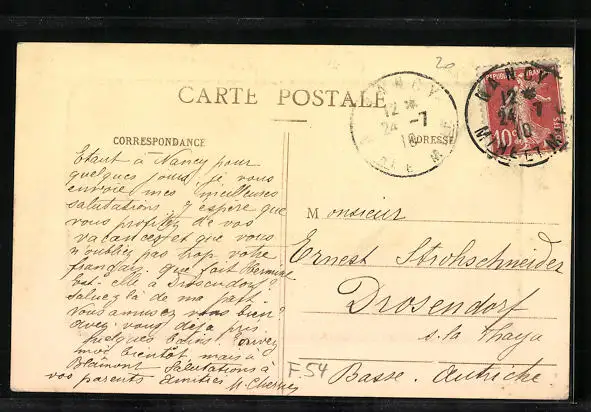 CARTE POSTALE
CORRESPONDANCE
ADRESSE
20
NANCY
12
24 -7
10
NANCY
12
24 -7
10
REPUBLIQUE FRANÇAISE
10c
Etant à Nancy pour
quelques jours je vous
envoie mes meilleures
salutations. J'espère que
vous profitez de vos
vacances et que vous
n'oubliez pas trop votre
français. que fait Hermine
Est-elle à Drosendorf?
Saluez-là de ma part.
Vous amusez vous bien?
avez-vous déjà pris
quelques bains. Ecrivez
moi bientôt mais à
Blâmont Salutations à
vos parents amitiés
Monsieur
Ernest Strohschneider
Drosendorf
s. la Thaya
Basse. Autriche.
F54